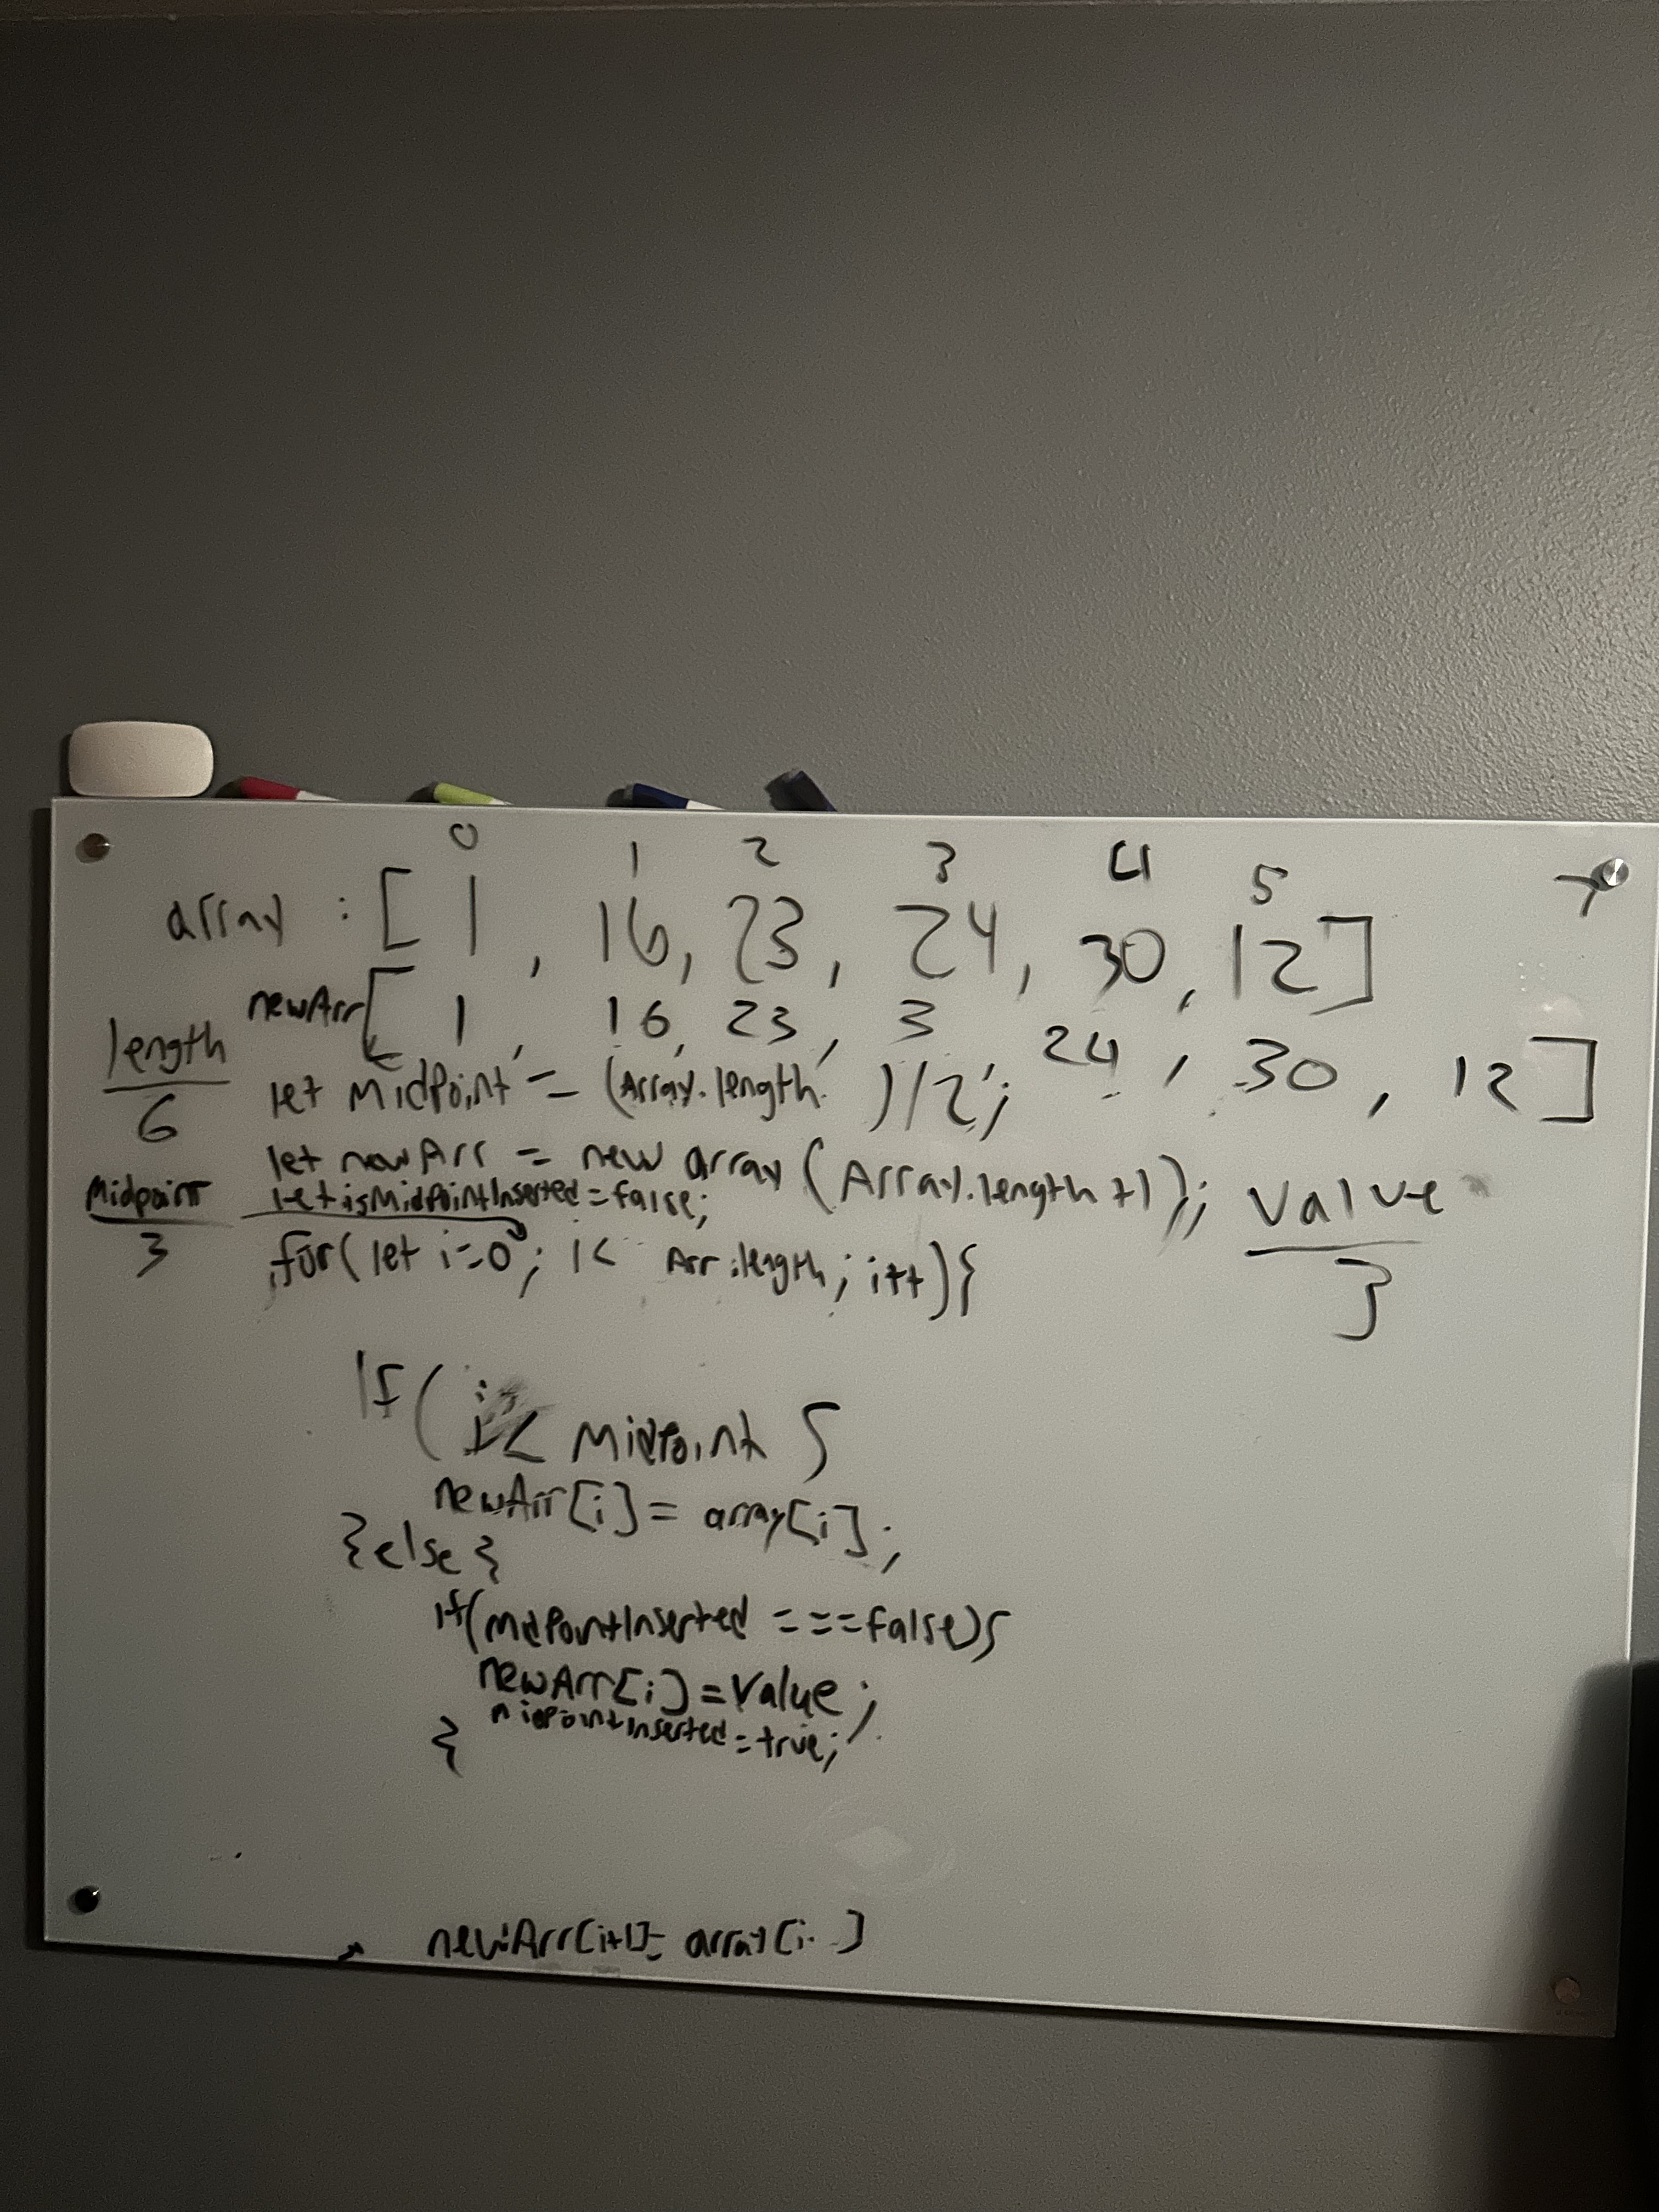 0 1 2 3 4 5 7
array : [ 1 , 16, 23, 24, 30, 12 ]
newArr [ 1 , 16, 23 , 3 24 , 30 , 12 ]
length
6
let MidPoint = (Array.length )/2;
let newArr = new array (Array.length +1);
Midpoint
3
let isMidPointInserted = false;
value
3
for( let i=0; i< Arr.length; i++){
If ( i< MidPoint {
newArr[i] = array[i];
} else {
if(midPointInserted === false){
newArr[i] = value;
midPointInserted = true;
}
newArr[i+1]= array[i ]